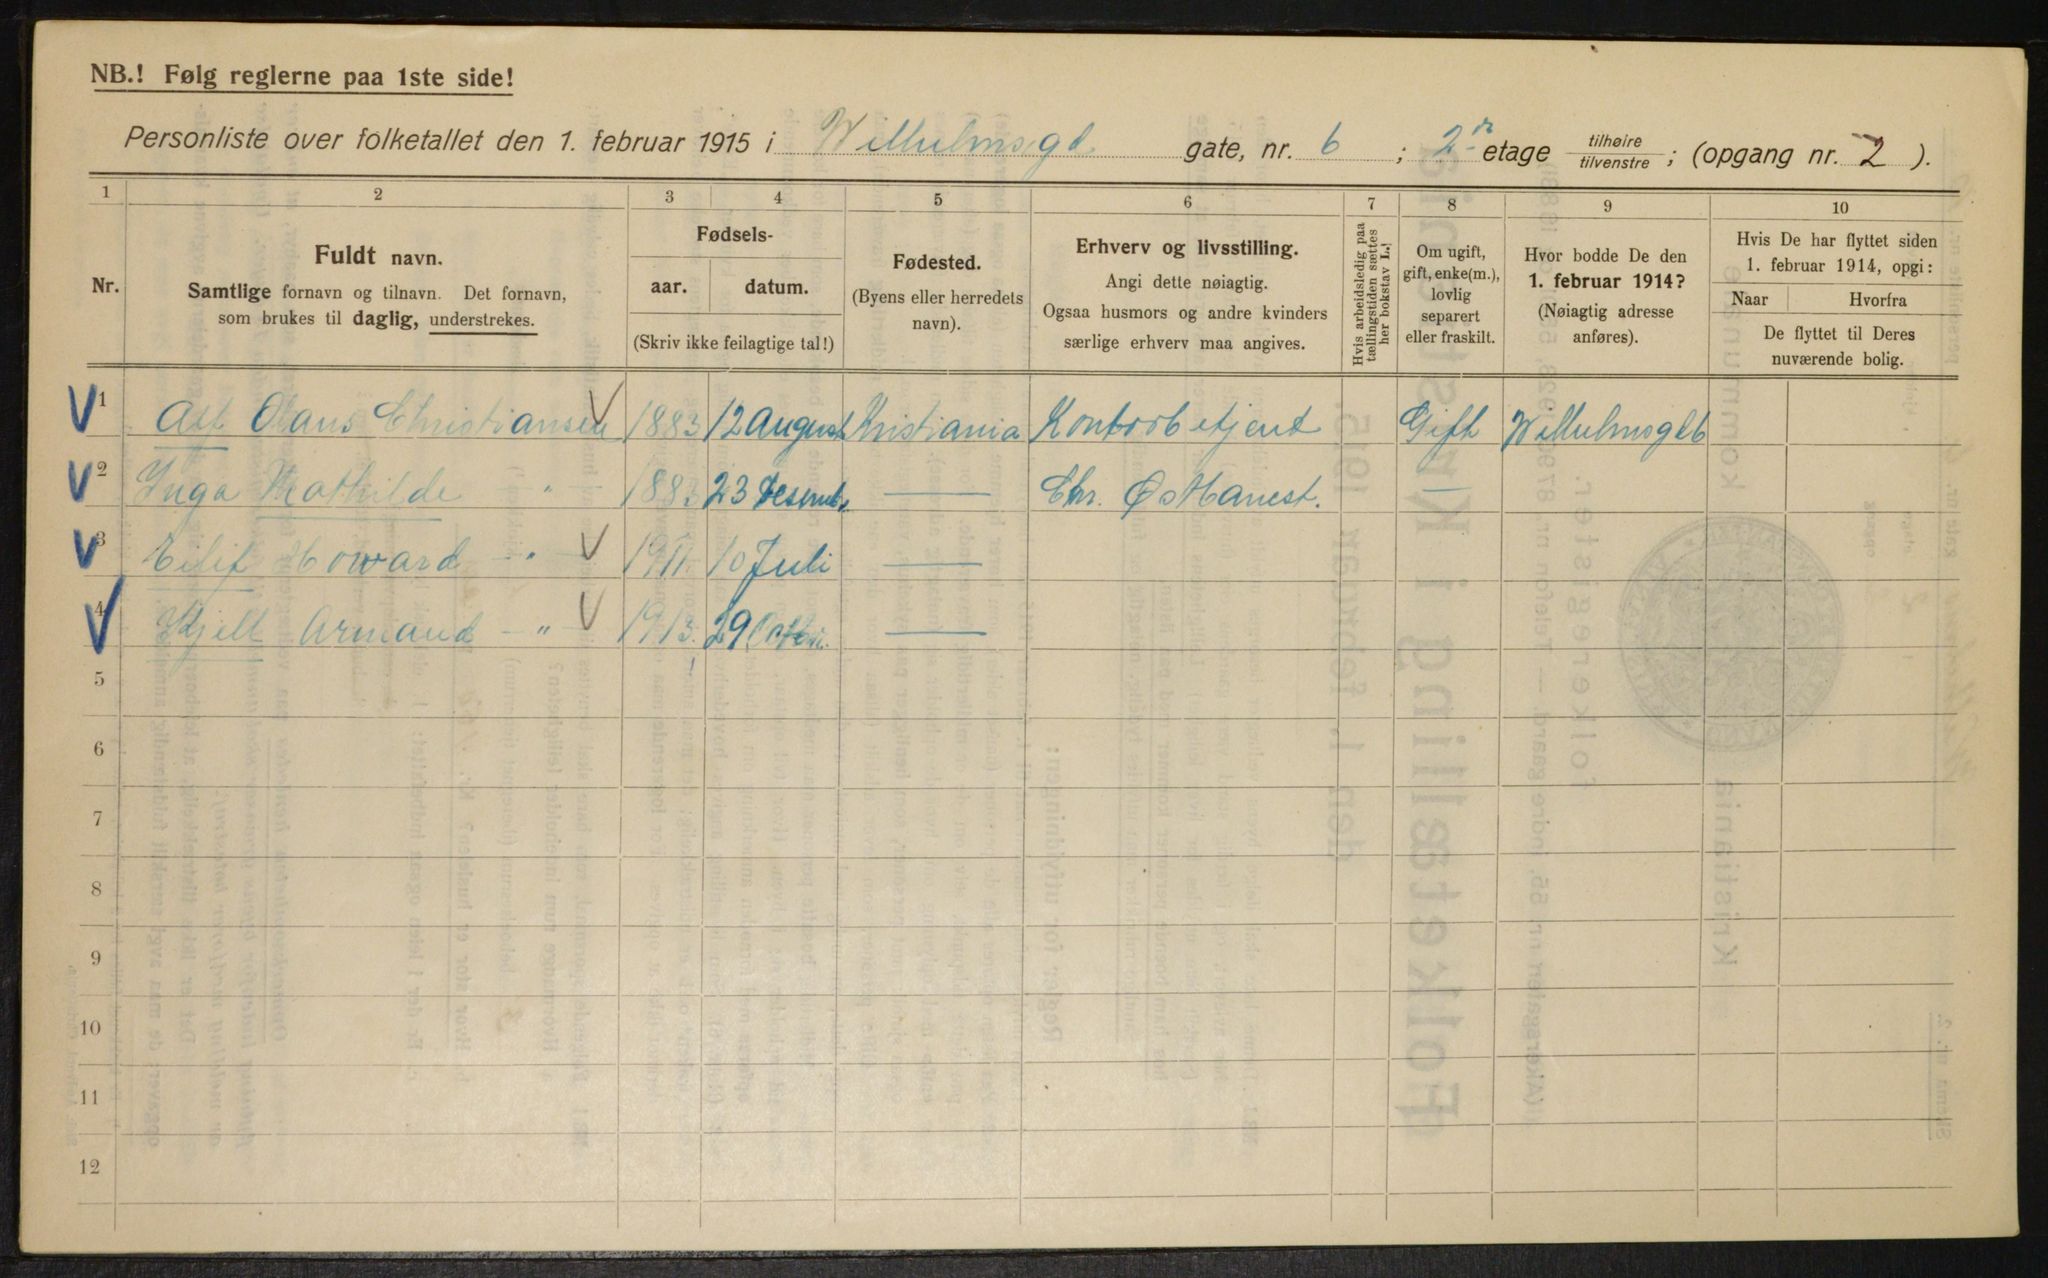 NB.! Følg reglerne paa 1ste side!
Personliste over folketallet den 1. februar 1915 i Wilhelmsgd gate, nr. 6 ; 2 etage tilhøire tilvenstre ; (opgang nr. 2 ).
1 2 3 4 5 6 7 8 9 10
Nr.
Fuldt navn.
Samtlige fornavn og tilnavn. Det fornavn,
som brukes til daglig, understrekes.
Fødsels-
aar. datum.
(Skriv ikke feilagtige tal!)
Fødested.
(Byens eller herredets
navn).
Erhverv og livsstilling.
Angi dette nøiagtig.
Ogsaa husmors og andre kvinders
særlige erhverv maa angives.
Hvis arbeidsledig paa
tællingstiden sættes
her bokstav L.!
Om ugift,
gift, enke(m.),
lovlig
separert
eller fraskilt.
Hvor bodde De den
1. februar 1914?
(Nøiagtig adresse
anføres).
Hvis De har flyttet siden
1. februar 1914, opgi:
Naar Hvorfra
De flyttet til Deres
nuværende bolig.
1 Alf Olaus Christiansen 1883 12 August Kristiania Kontorbetjent Gift Wilhelmsgt 6
2 Inga Mathilde — " — 1883 23 Desemb. — Chr. —
3 Eilif Howard — " — 1911 10 Juli —
4 Kjell Armand — " — 1913 29 Oktbr. —
5
6
7
8
9
10
11
12